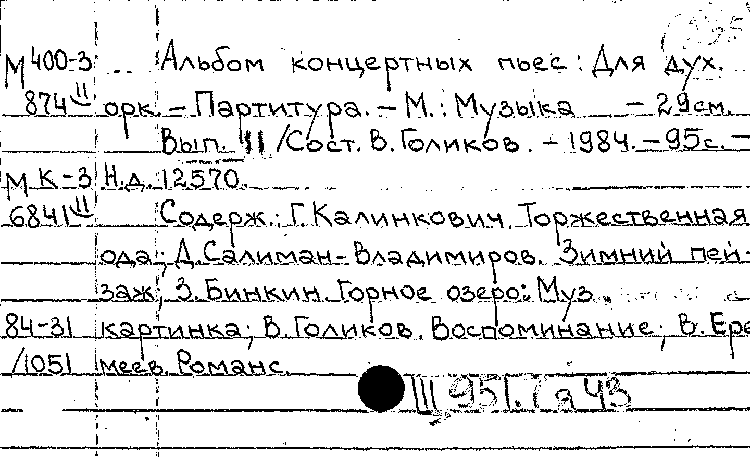 М 400-3 Альбом концертных пьес : Для дух.
874 II орк. – Партитура. – М. : Музыка – 29см.
Вып. 11 / Сост. В. Голиков. – 1984. – 95с. –
М К-3 Н.д. 12570.
6841 II Содерж.: Г. Калинкович. Торжественная
ода; Д. Салиман-Владимиров. Зимний пей-
заж; З. Бинкин. Горное озеро: Муз.
84-31 картинка; В. Голиков. Воспоминание; В. Ере
/1051 меев. Романс.
III 951. я 43